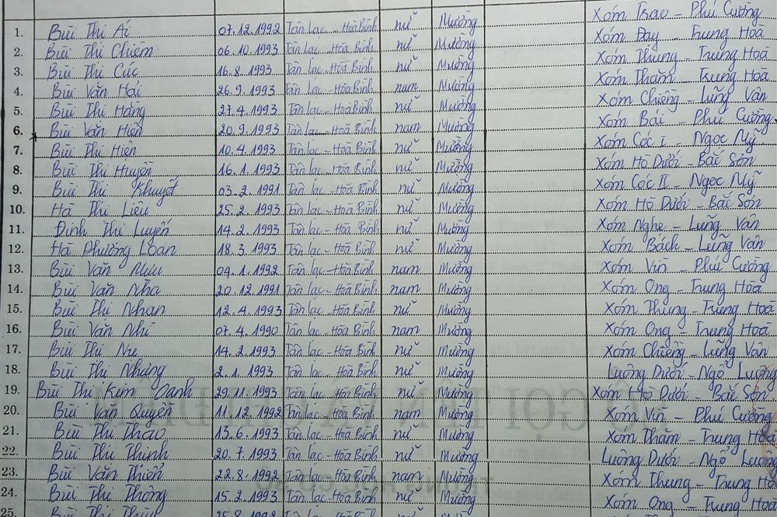 1. Bùi Thị Ái 07.12.1992 Tân Lạc - Hoà Bình nữ Mường Xóm Trao - Phú Cường
2. Bùi Thị Chiêm 06.10.1993 Tân Lạc - Hoà Bình nữ Mường Xóm Đay - Trung Hoà
3. Bùi Thị Cúc 16.8.1993 Tân Lạc - Hoà Bình nữ Mường Xóm Thung - Trung Hoà
4. Bùi Văn Hải 26.9.1993 Tân Lạc - Hoà Bình nam Mường Xóm Thăm - Trung Hoà
5. Bùi Thị Hằng 27.4.1993 Tân Lạc - Hoà Bình nữ Mường Xóm Chiềng - Lũng Vân
6. Bùi Văn Hiện 20.9.1993 Tân Lạc - Hoà Bình nam Mường Xóm Bái - Phú Cường
7. Bùi Thị Hiện 10.4.1993 Tân Lạc - Hoà Bình nữ Mường Xóm Cóc I - Ngọc Mỹ
8. Bùi Thị Huyền 16.1.1993 Tân Lạc - Hoà Bình nữ Mường Xóm Hò Dưới - Bắc Sơn
9. Bùi Thị Khuyết 03.2.1991 Tân Lạc - Hoà Bình nữ Mường Xóm Cóc II - Ngọc Mỹ
10. Hà Thị Liệu 25.2.1993 Tân Lạc - Hoà Bình nữ Mường Xóm Hò Dưới - Bắc Sơn
11. Đinh Thị Luyến 14.2.1993 Tân Lạc - Hoà Bình nữ Mường Xóm Nghẹ - Lũng Vân
12. Hà Phương Loan 18.3.1993 Tân Lạc - Hoà Bình nữ Mường Xóm Bách - Lũng Vân
13. Bùi Văn 04.1.1992 Tân Lạc - Hoà Bình nam Mường Xóm Vin - Phú Cường
14. Bùi Văn Nha 20.12.1991 Tân Lạc - Hoà Bình nam Mường Xóm Ong - Trung Hoà
15. Bùi Thị Nhan 12.4.1993 Tân Lạc - Hoà Bình nữ Mường Xóm Thung - Trung Hoà
16. Bùi Văn Nhi 07.4.1990 Tân Lạc - Hoà Bình nam Mường Xóm Ong - Trung Hoà
17. Bùi Thị Nu 14.2.1993 Tân Lạc - Hoà Bình nữ Mường Xóm Chiềng - Lũng Vân
18. Bùi Thị Nhàng 2.1.1993 Tân Lạc - Hoà Bình nữ Mường Luông Dưới - Ngổ Luông
19. Bùi Thị Kim Oanh 29.11.1993 Tân Lạc - Hoà Bình nữ Mường Xóm Hò Dưới - Bắc Sơn
20. Bùi Văn Quyền 11.12.1992 Tân Lạc - Hoà Bình nam Mường Xóm Vin - Phú Cường
21. Bùi Thị Thảo 13.6.1993 Tân Lạc - Hoà Bình nữ Mường Xóm Thăm - Trung Hoà
22. Bùi Thị Thinh 20.7.1993 Tân Lạc - Hoà Bình nữ Mường Luông Dưới - Ngổ Luông
23. Bùi Văn Thiển 22.8.1992 Tân Lạc - Hoà Bình nam Mường Xóm Thung - Trung Hoà
24. Bùi Thị Thông 15.2.1993 Tân Lạc - Hoà Bình nữ Mường Xóm Ong - Trung Hoà
25. Bùi Thị